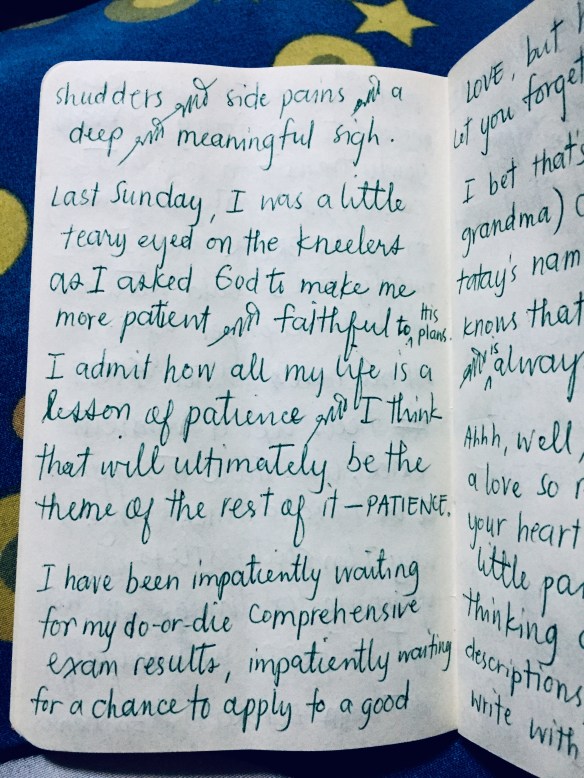 shudders and side pains and a
deep and meaningful sigh.
Last Sunday, I was a little
teary eyed on the kneelers
as I asked God to make me
more patient and faithful to His plans.
I admit how all my life is a
lesson of patience and I think
that will ultimately be the
theme of the rest of it – PATIENCE.
I have been impatiently waiting
for my do-or-die comprehensive
exam results, impatiently waiting
for a chance to apply to a good
LOVE, but
let you forget
I bet that's
grandma)
tatay's nam
knows that
and is alway
Ahhh, well,
a love so
your heart
little pa
thinking
descriptions
write with